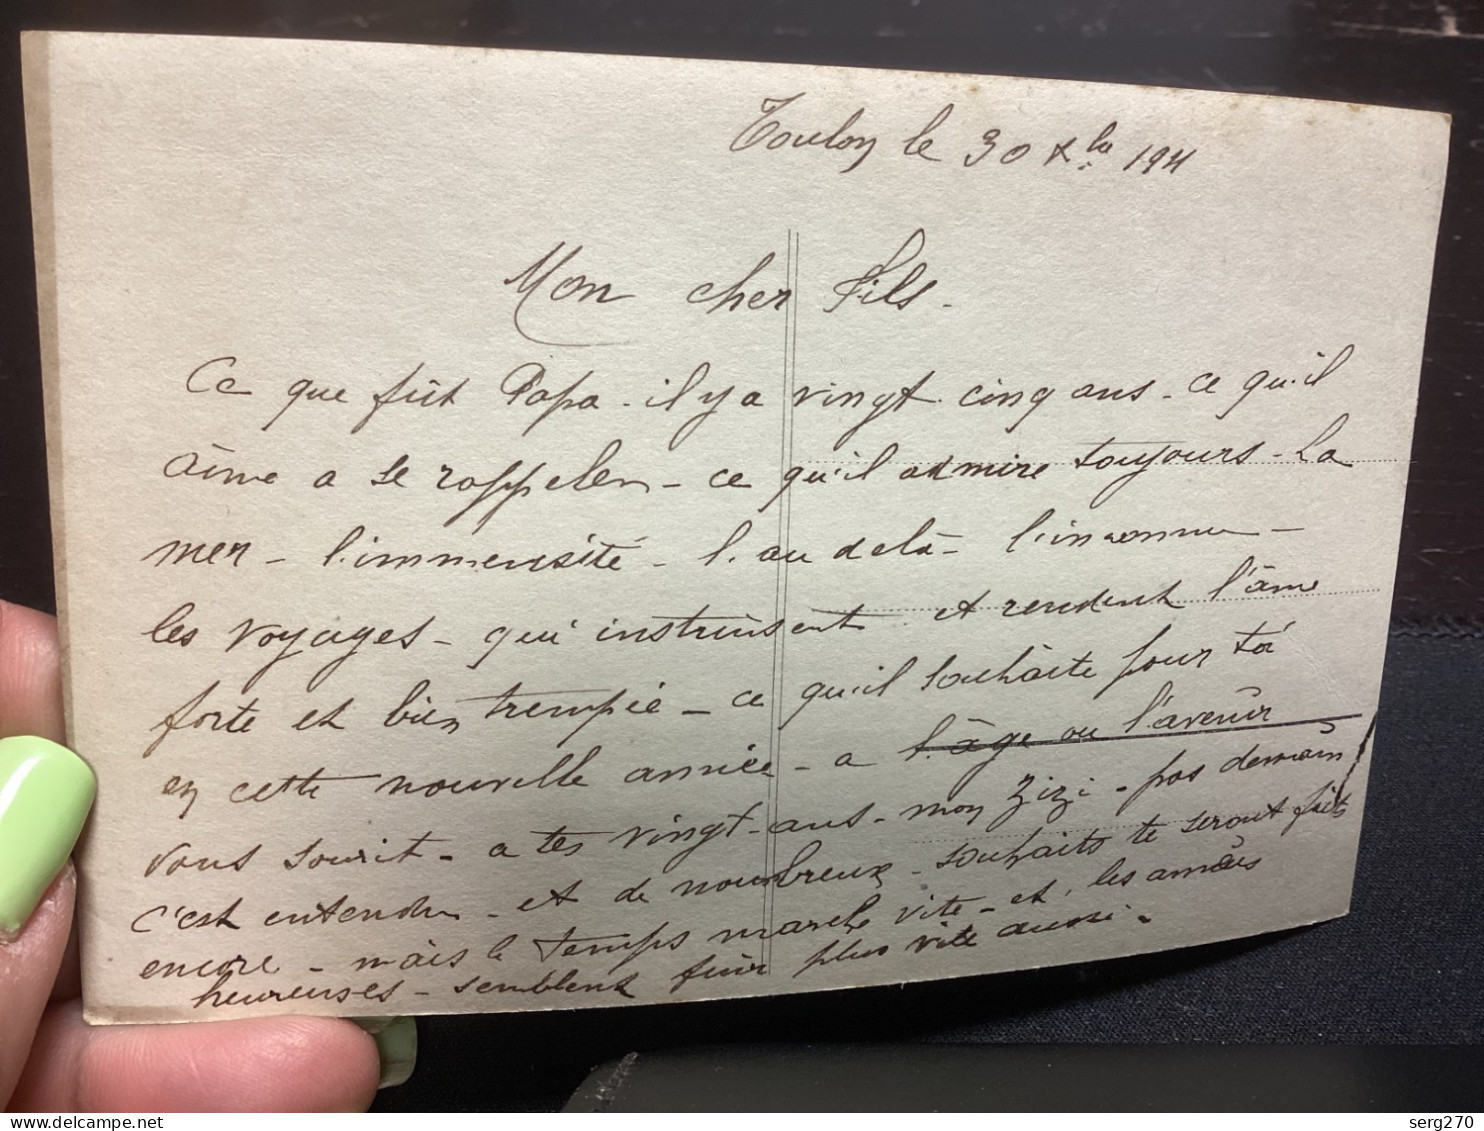 Toulon le 30 Xbre 1911
Mon cher Fils.
Ce que fût Papa - il y a vingt cinq ans - ce qu'il
aime a se rappeler - ce qu'il admire toujours - La
mer - l'immensité - l'au delà - l'inconnu -
les voyages - qui instruisent et rendent l'âme
forte et bien trempée - ce qu'il souhaite pour toi
en cette nouvelle année - a l'âge ou l'avenir
vous sourit - a tes vingt-ans - mon Zizi - pas demain
c'est entendu - et de nombreux souhaits te seront faits
encore - mais le temps marche vite - et les années
heureuses - semblent fuir plus vite aussi -
serg270